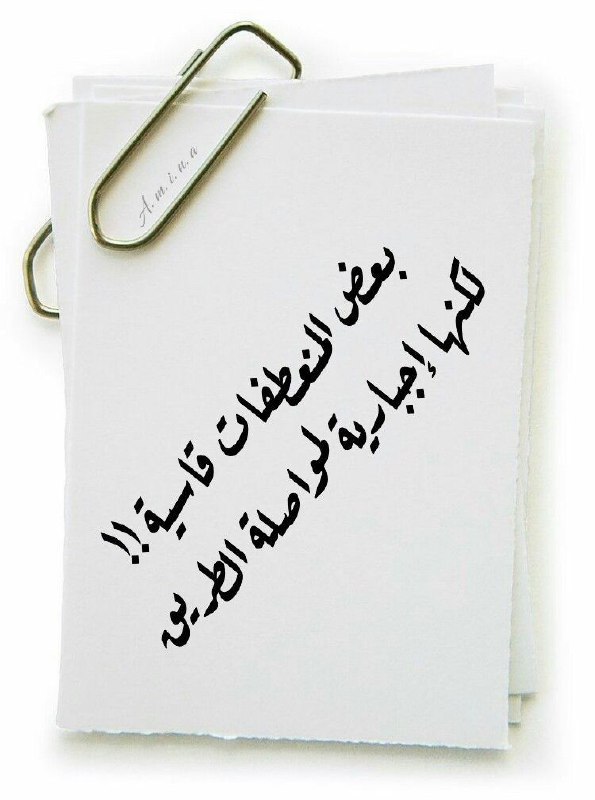 A.m.i.n.a
بعض المنعطفات قاسية!!
لكنها إجبارية لمواصلة الطريق